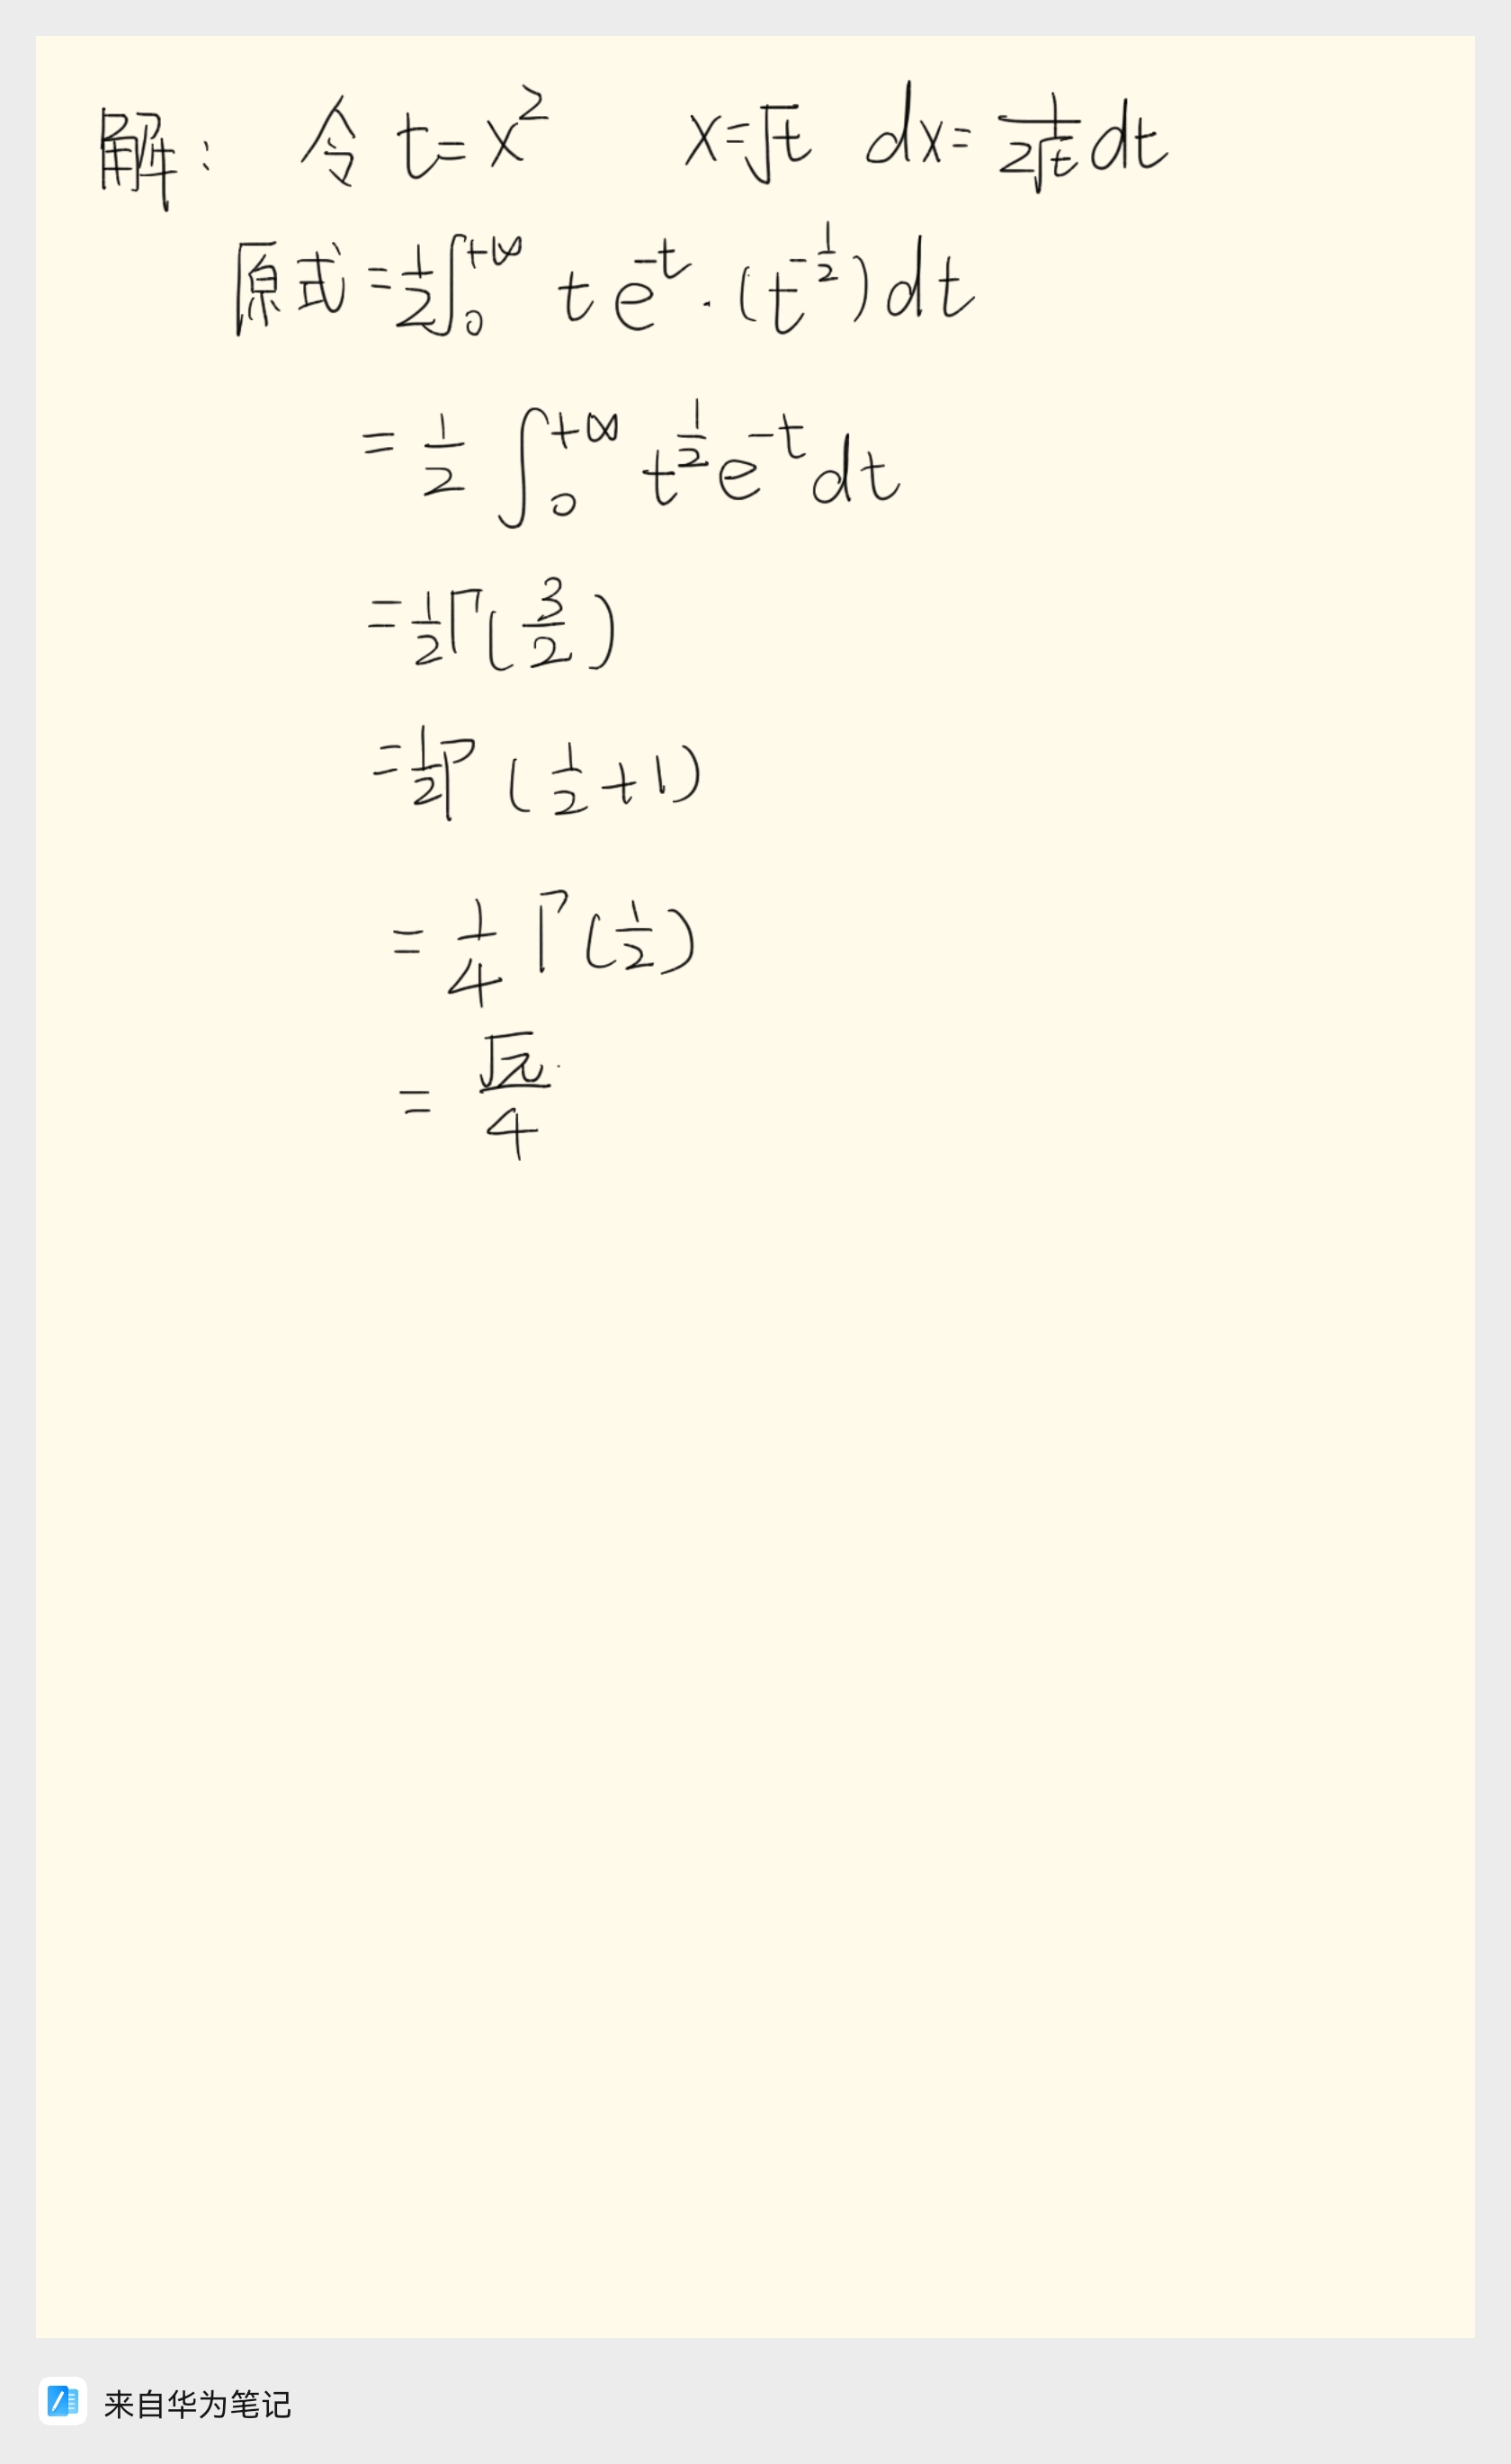 解： 令 t=x² x=√t dx=\frac{1}{2√t}dt
原式=\frac{1}{2}∫_0^{+∞} t e^{-t}·(t^{-\frac{1}{2}})dt
=\frac{1}{2}∫_0^{+∞} t^{\frac{1}{2}}e^{-t}dt
=\frac{1}{2}Γ(\frac{3}{2})
=\frac{1}{2}Γ(\frac{1}{2}+1)
=\frac{1}{4}Γ(\frac{1}{2})
=\frac{√π}{4}
来自华为笔记